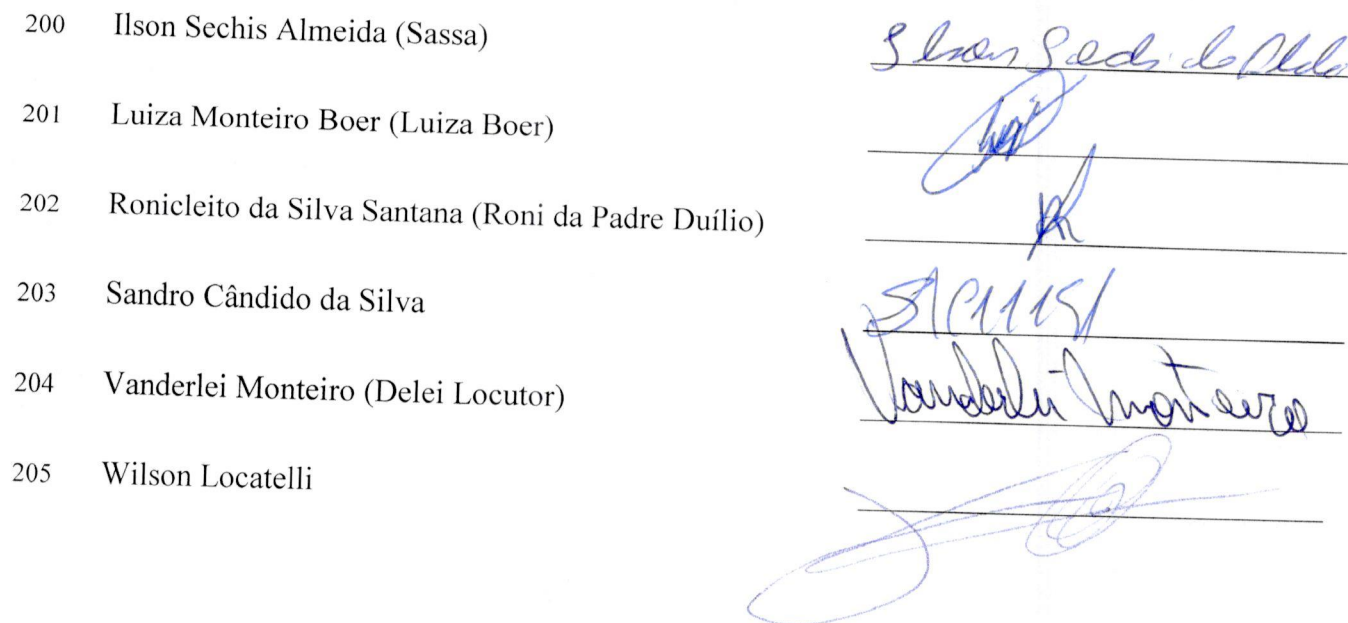 200 Ilson Sechis Almeida (Sassa)
201 Luiza Monteiro Boer (Luiza Boer)
202 Ronicleito da Silva Santana (Roni da Padre Duílio)
203 Sandro Cândido da Silva
204 Vanderlei Monteiro (Delei Locutor) Vanderlei Monteiro
205 Wilson Locatelli